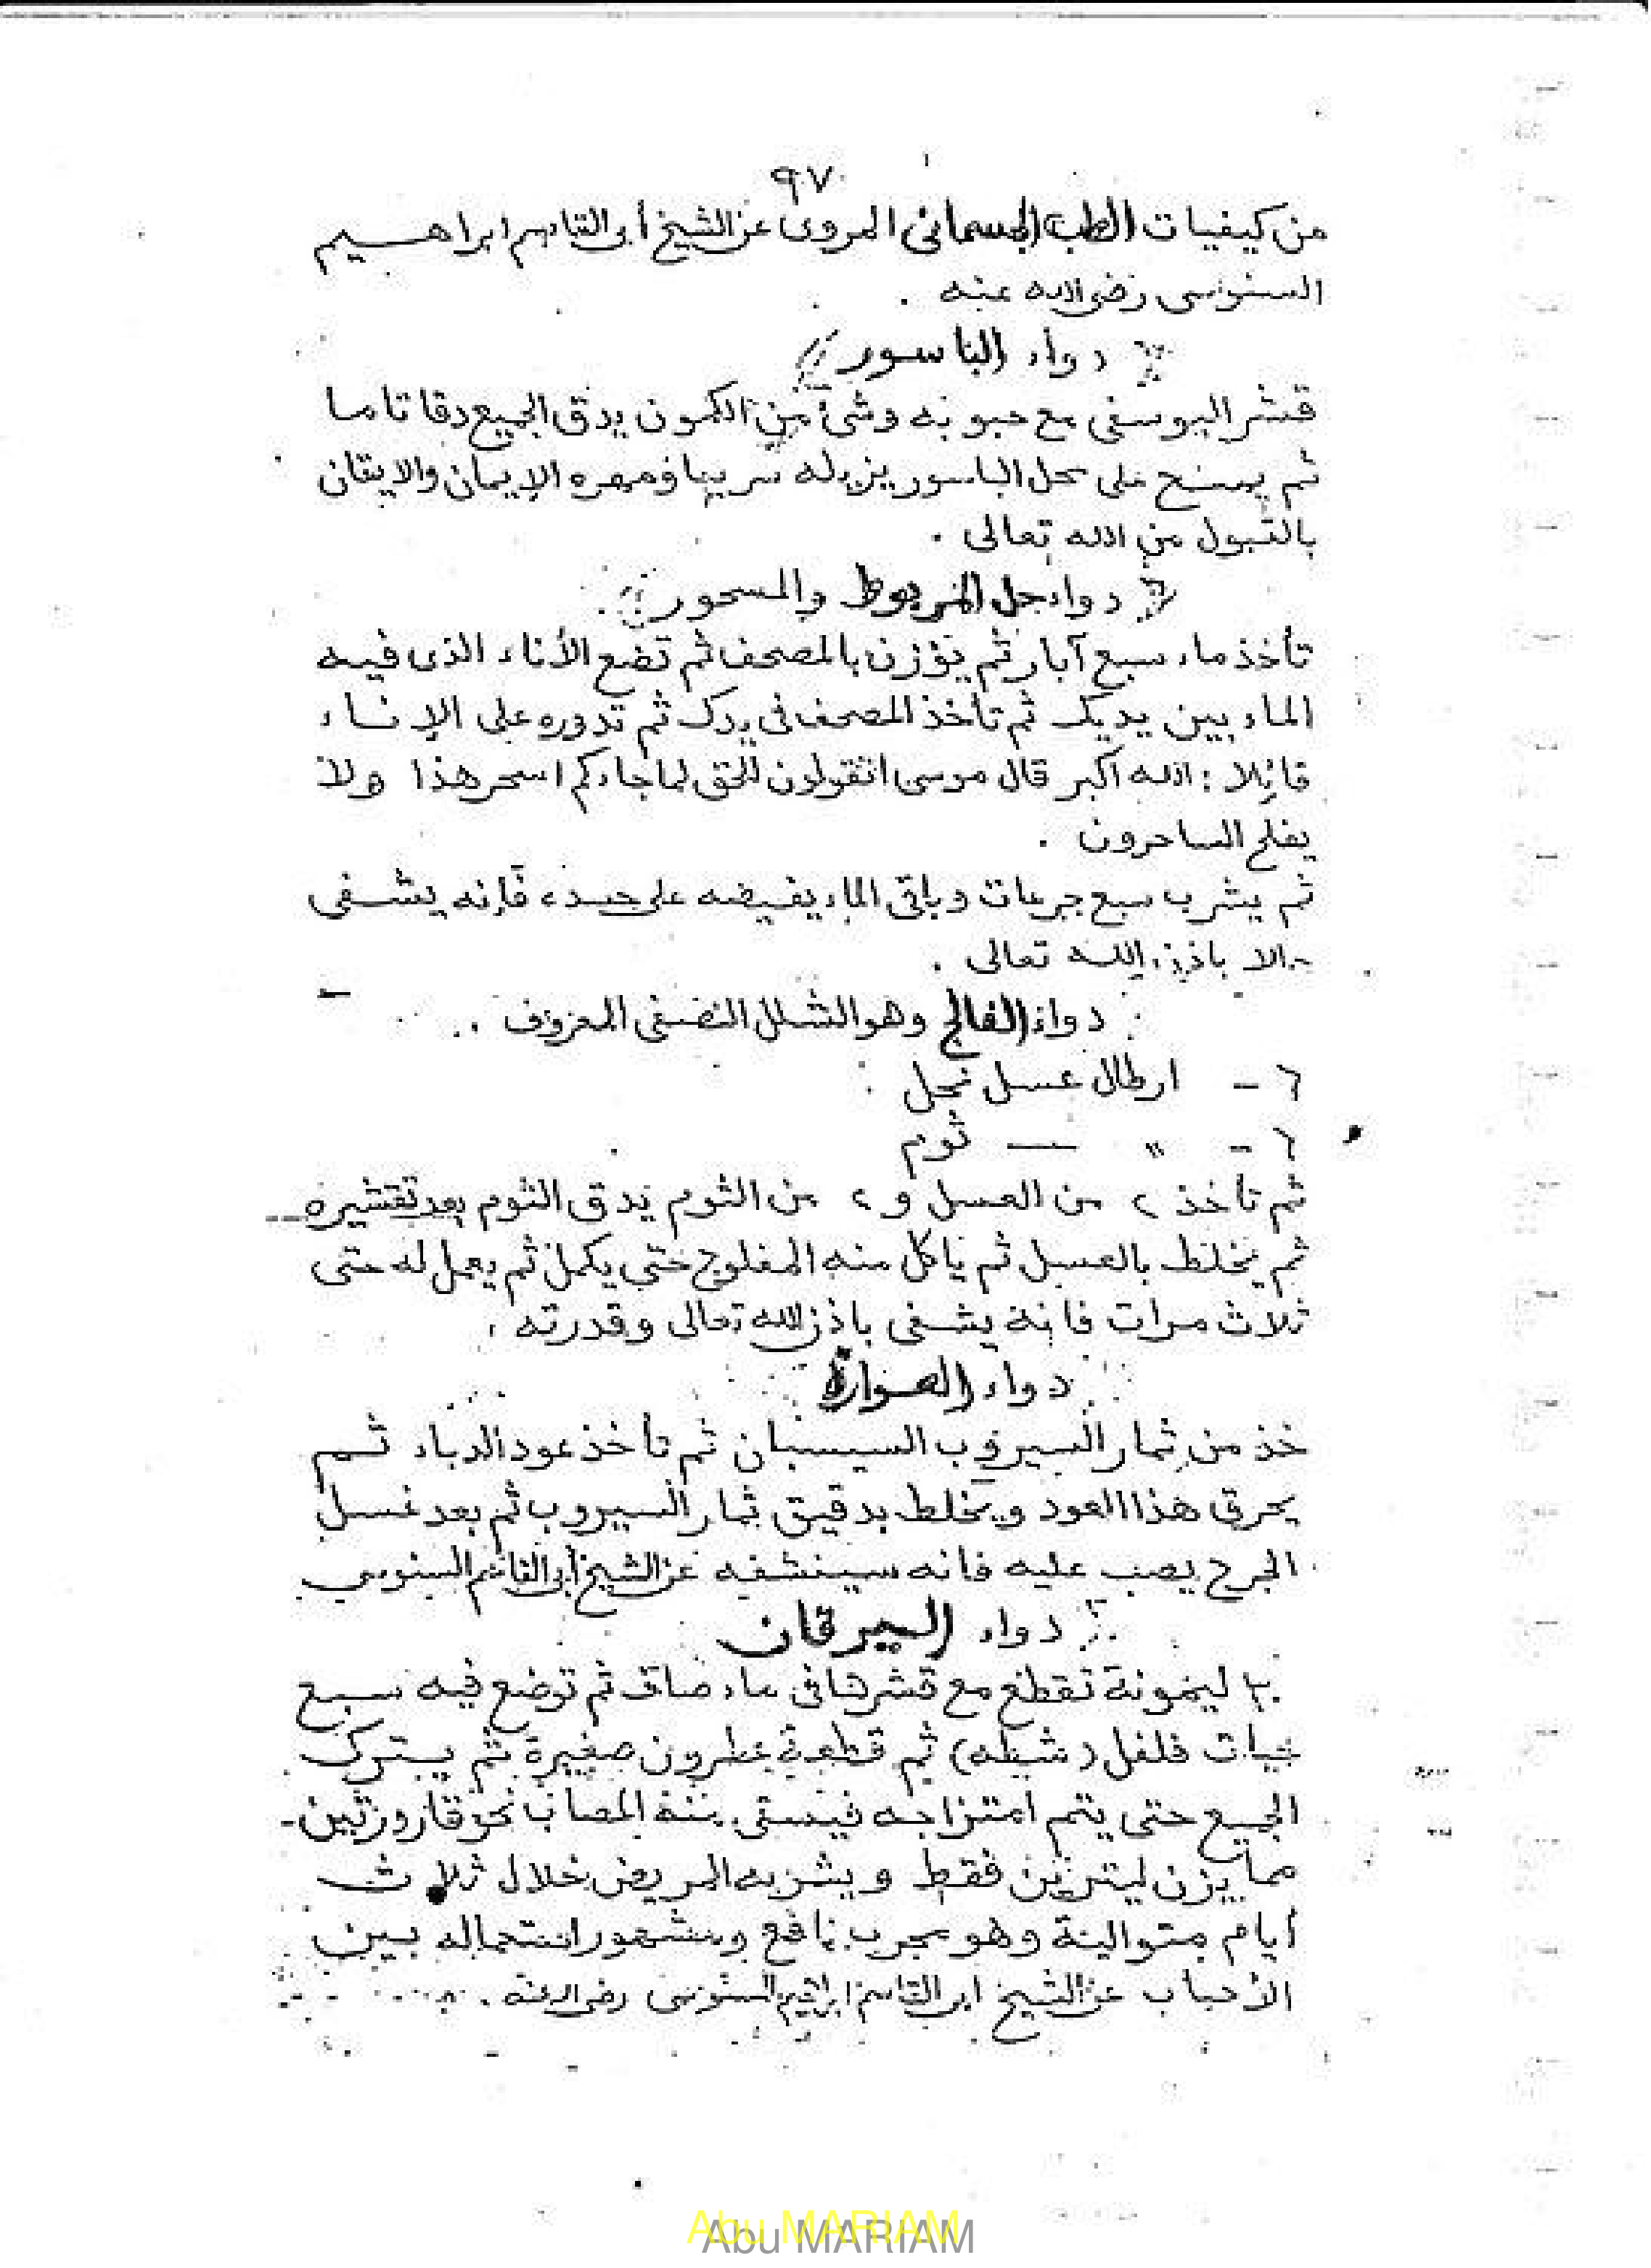 ٩٧
من كيفيات الطب الجسمانى المروى عن الشيخ أبى القاسم ابراهيم
السنوسى رضى الله عنه .
دواء الباسور
قشر اليوسفى مع حبوبه وشئ من الكمون يدق الجميع دقا تاما
ثم يمسح على محل الباسور يزيله سريعا ومهره الإيمان والايقان
بالقبول من الله تعالى .
دواء حل المربوط والمسحور
تأخذ ماء سبع آبار ثم يؤزن بالمصحف ثم تضع الأناء الذى فيه
الماء بين يديك ثم تأخذ المصحف فى يدك ثم تدوره على الإناء
قائلا : الله أكبر قال موسى اتقولون للحق لما جاءكم اسحر هذا ولا
يفلح الساحرون .
ثم يشرب سبع جرعات وباقى الماء يفيضه على جسده فإنه يشفى
حالا باذن الله تعالى .
دواء الفالج وهو الشلل النصفى المعروف .
٦ - ارطال عسل نحل
٦ - " — ثوم
ثم تأخذ ٢ من العسل و ٢ من الثوم يدق الثوم بعد تقشيره
ثم يخلط بالعسل ثم ياكل منه المفلوج حتى يكمل ثم يعمل له حتى
ثلاث مرات فانه يشفى باذن الله تعالى وقدرته .
دواء
خذ من ثمار السيروب السيسبان ثم تأخذ عود الدباء ثم
يحرق هذا العود ويخلط بدقيق ثمار السيروب ثم بعد غسل
الجرح يصب عليه فانه سينشفه عن الشيخ أبى القاسم السنوسى
دواء اليرقان
ليمونة تقطع مع قشرها فى ماء صاف ثم توضع فيه سبع
حبات فلفل (شطه) ثم قطعة عطرون صغيرة ثم يترك
الجميع حتى يتم امتزاجه فيسقى منه المصاب نحو قاروزتين
مما يزن ليترين فقط ويشربه المريض خلال ثلاث
أيام متوالية وهو مجرب نافع ومشهور استعماله بين
الأحباب عن الشيخ ابى القاسم ابراهيم السنوسى رضى الله عنه .
Abu MARIAM